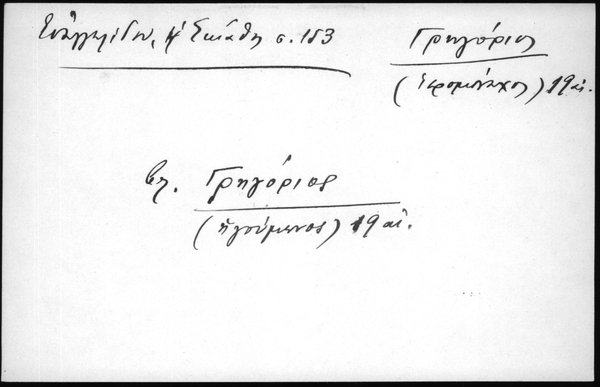 Εὐαγγελίδου, ἡ Σκιάθος σ. 153
Γρηγόριος
(ἱερομόναχος) 19 αἰ.
βλ. Γρηγόριος
(ἡγούμενος) 19 αἰ.